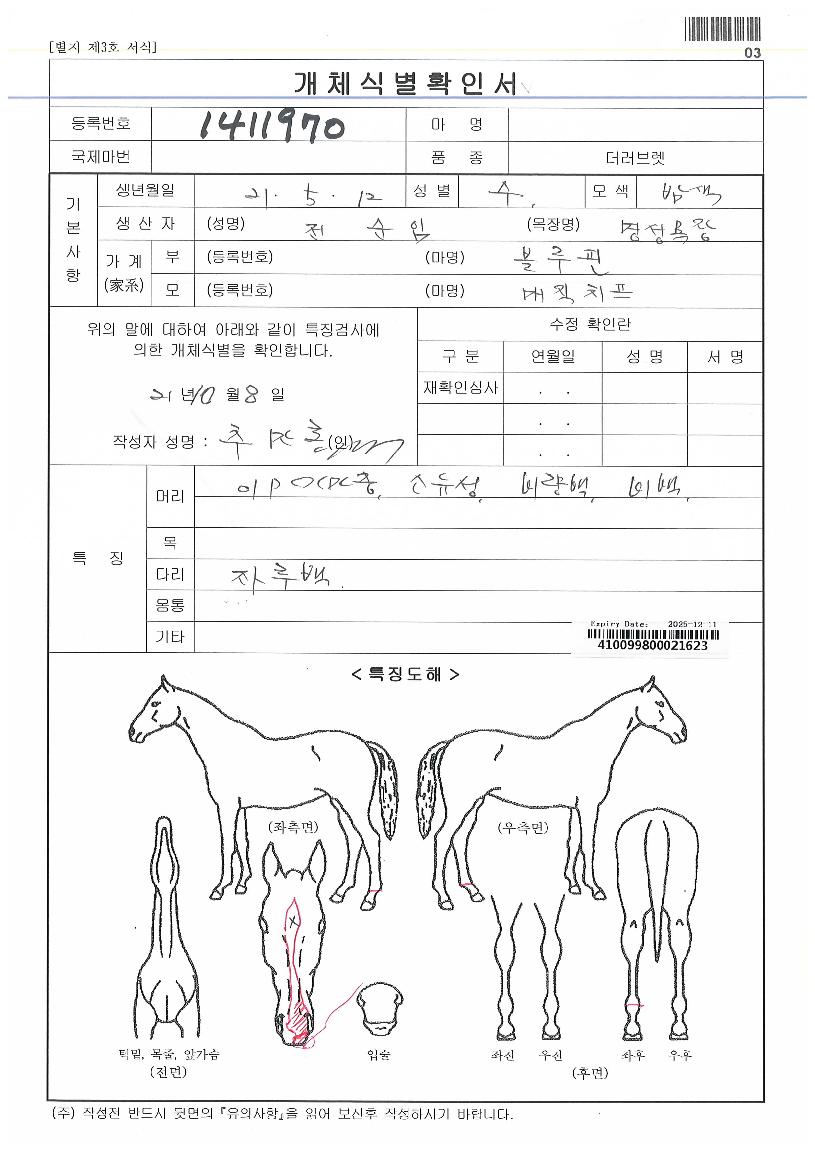 [별지 제3호 서식]
03
개체식별확인서
등록번호 1411970 마 명
국제마번 품 종 더러브렛
기본사항
생년월일 21. 5. 12 성별 수. 모색 밤색
생산자 (성명) 전순임 (목장명)
가계(家系) 부 (등록번호) (마명) 블루핀
모 (등록번호) (마명) 매직치프
위의 말에 대하여 아래와 같이 특징검사에
의한 개체식별을 확인합니다.
21년 10월 8일
작성자 성명 : (인)
수정 확인란
구 분 연월일 성 명 서 명
재확인심사 . .
. .
. .
특 징
머리 유성, 비량백, 비백.
목
다리 좌후백.
몸통
기타
Expiry Date: 2025-12-11
410099800021623
< 특징도해 >
(좌측면) (우측면)
턱밑, 목줄, 앞가슴
(전면)
입술
좌전 우전 좌후 우후
(후면)
(주) 작성전 반드시 뒷면의 『유의사항』을 읽어 보신후 작성하시기 바랍니다.